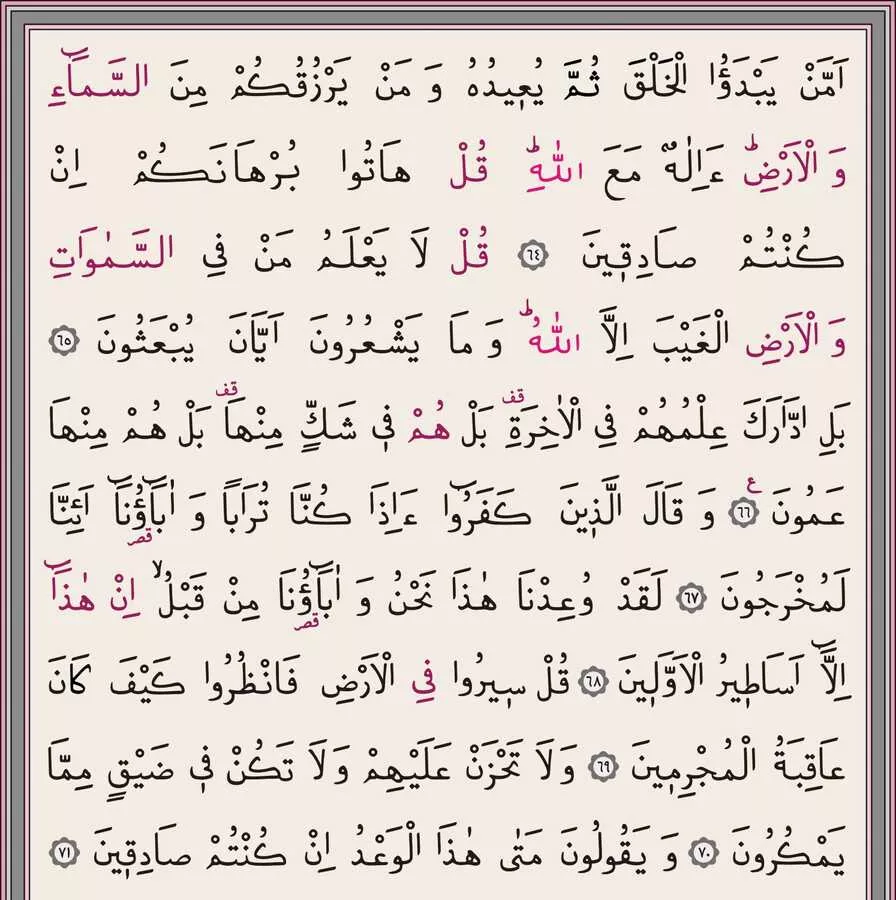 اَمَّنْ يَبْدَؤُا الْخَلْقَ ثُمَّ يُعٖيدُهُ وَ مَنْ يَرْزُقُكُمْ مِنَ السَّمَٓاءِ
وَ الْاَرْضِؕ ءَاِلٰهٌ مَعَ اللّٰهِؕ قُلْ هَاتُوا بُرْهَانَكُمْ اِنْ
كُنْتُمْ صَادِقٖينَ ٦٤ قُلْ لَا يَعْلَمُ مَنْ فِى السَّمٰوَاتِ
وَ الْاَرْضِ الْغَيْبَ اِلَّا اللّٰهُؕ وَ مَا يَشْعُرُونَ اَيَّانَ يُبْعَثُونَ ٦٥
بَلِ ادَّارَكَ عِلْمُهُمْ فِى الْاٰخِرَةِ قف بَلْ هُمْ فٖى شَكٍّ مِنْهَا قف بَلْ هُمْ مِنْهَا
عَمُونَ ٦٦ ع وَ قَالَ الَّذٖينَ كَفَرُٓوا ءَاِذَا كُنَّا تُرَاباً وَ اٰبَٓاؤُ۬نَٓا قصر اَئِنَّا
لَمُخْرَجُونَ ٦٧ لَقَدْ وُعِدْنَا هٰذَا نَحْنُ وَ اٰبَٓاؤُ۬نَا قصر مِنْ قَبْلُۙ اِنْ هٰذَٓا
اِلَّٓا اَسَاطٖيرُ الْاَوَّلٖينَ ٦٨ قُلْ سٖيرُوا فِى الْاَرْضِ فَانْظُرُوا كَيْفَ كَانَ
عَاقِبَةُ الْمُجْرِمٖينَ ٦٩ وَلَا تَحْزَنْ عَلَيْهِمْ وَلَا تَكُنْ فٖى ضَيْقٍ مِمَّا
يَمْكُرُونَ ٧٠ وَ يَقُولُونَ مَتٰى هٰذَا الْوَعْدُ اِنْ كُنْتُمْ صَادِقٖينَ ٧١